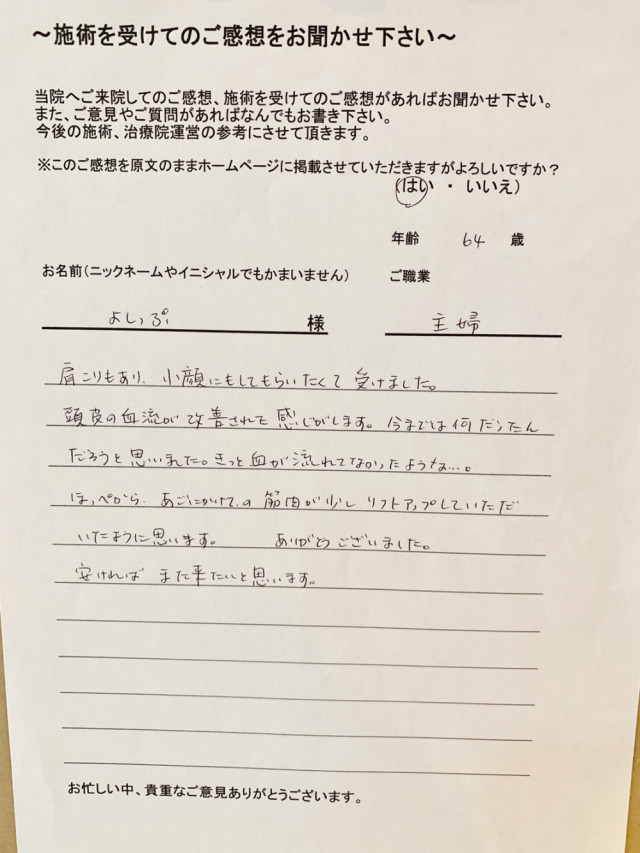 ～施術を受けてのご感想をお聞かせ下さい～
当院へご来院してのご感想、施術を受けてのご感想があればお聞かせ下さい。
また、ご意見やご質問があればなんでもお書き下さい。
今後の施術、治療院運営の参考にさせて頂きます。
※このご感想を原文のままホームページに掲載させていただきますがよろしいですか？
（はい ・ いいえ）
年齢 64 歳
お名前（ニックネームやイニシャルでもかまいません） ご職業
よしっぷ 様 主婦
肩こりもあり、小顔にもしてもらいたくて 受けました。
頭皮の血流が改善された感じがします。今までは何だったん
だろうと思いました。きっと血が流れてなかったような…。
ほっぺから、あごにかけての筋肉が少しリフトアップしていただ
いたように思います。 ありがとうございました。
安ければ また来たいと思います。
お忙しい中、貴重なご意見ありがとうございます。